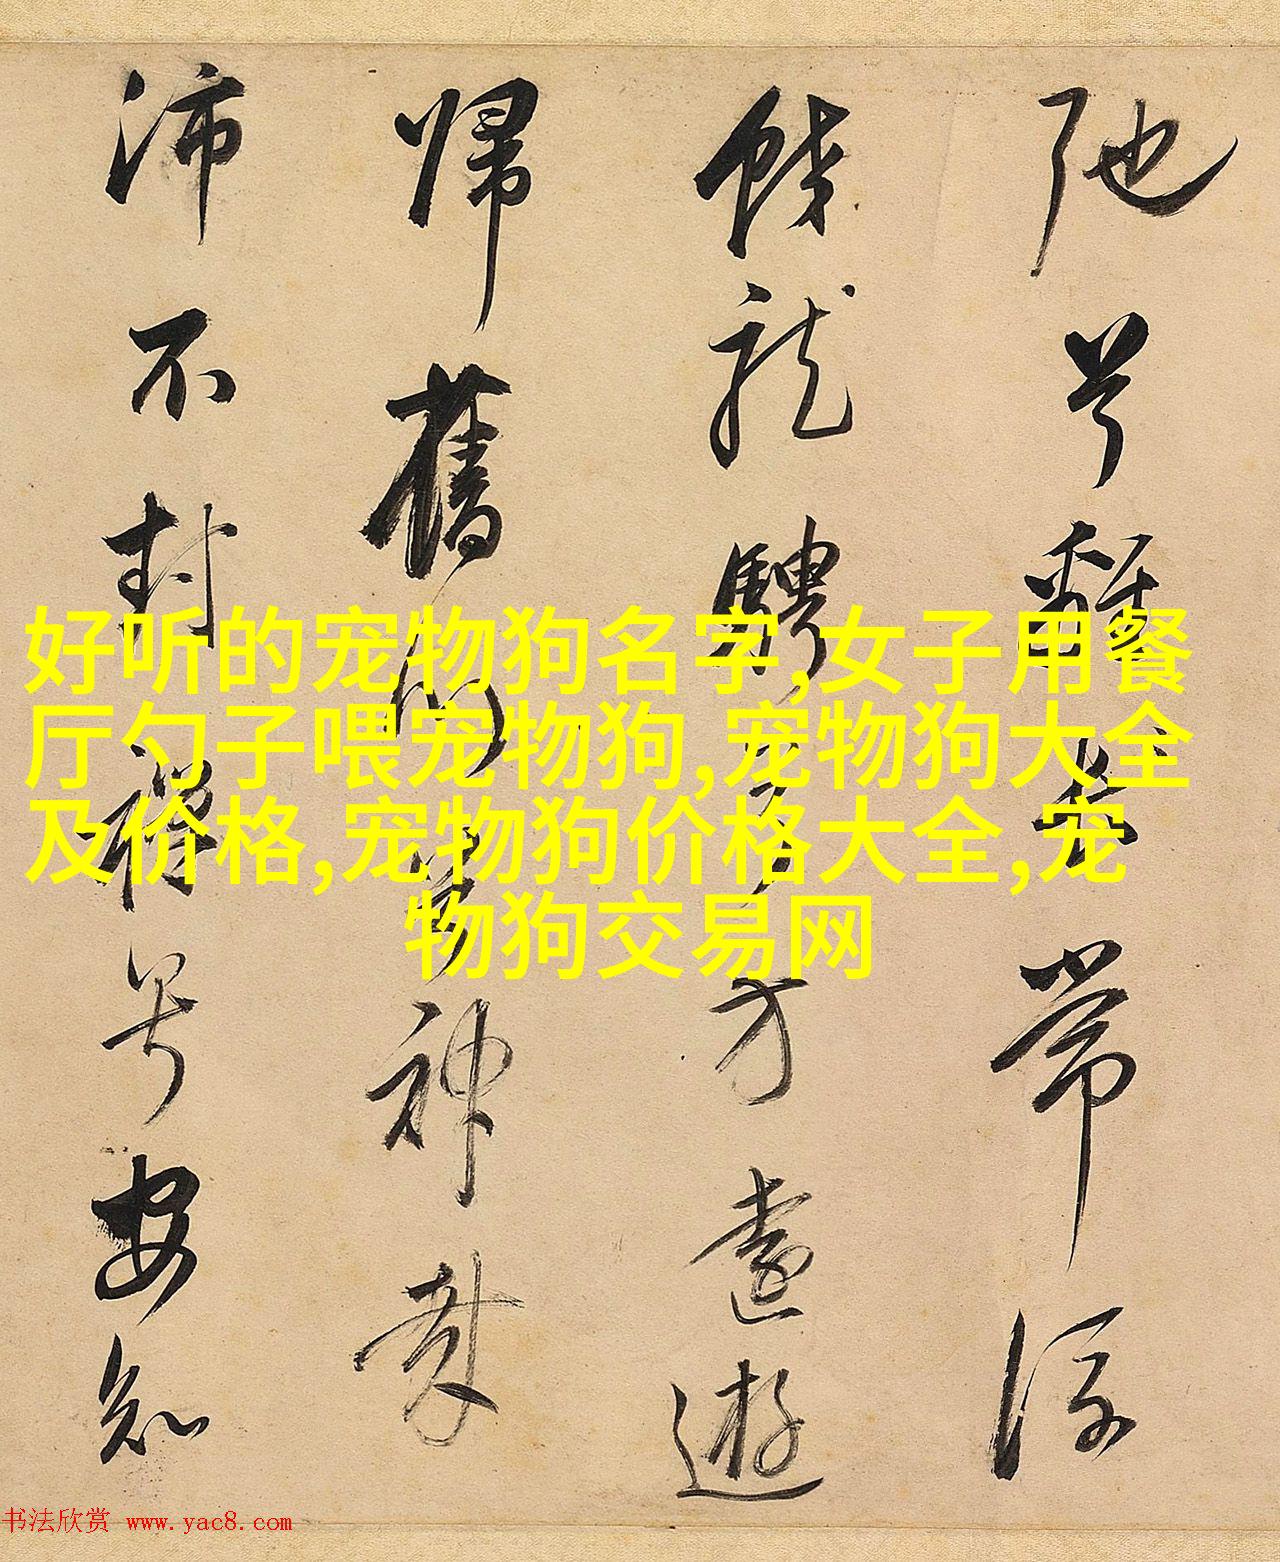 弛兮離常流
龍騁兮方遠遊
歸舊川兮神哉
沛不封禪兮安知
好听的宠物狗名字,女子用餐
厅勺子喂宠物狗,宠物狗大全
及价格,宠物狗价格大全,宠
物狗交易网
书法欣赏 www.yac8.com